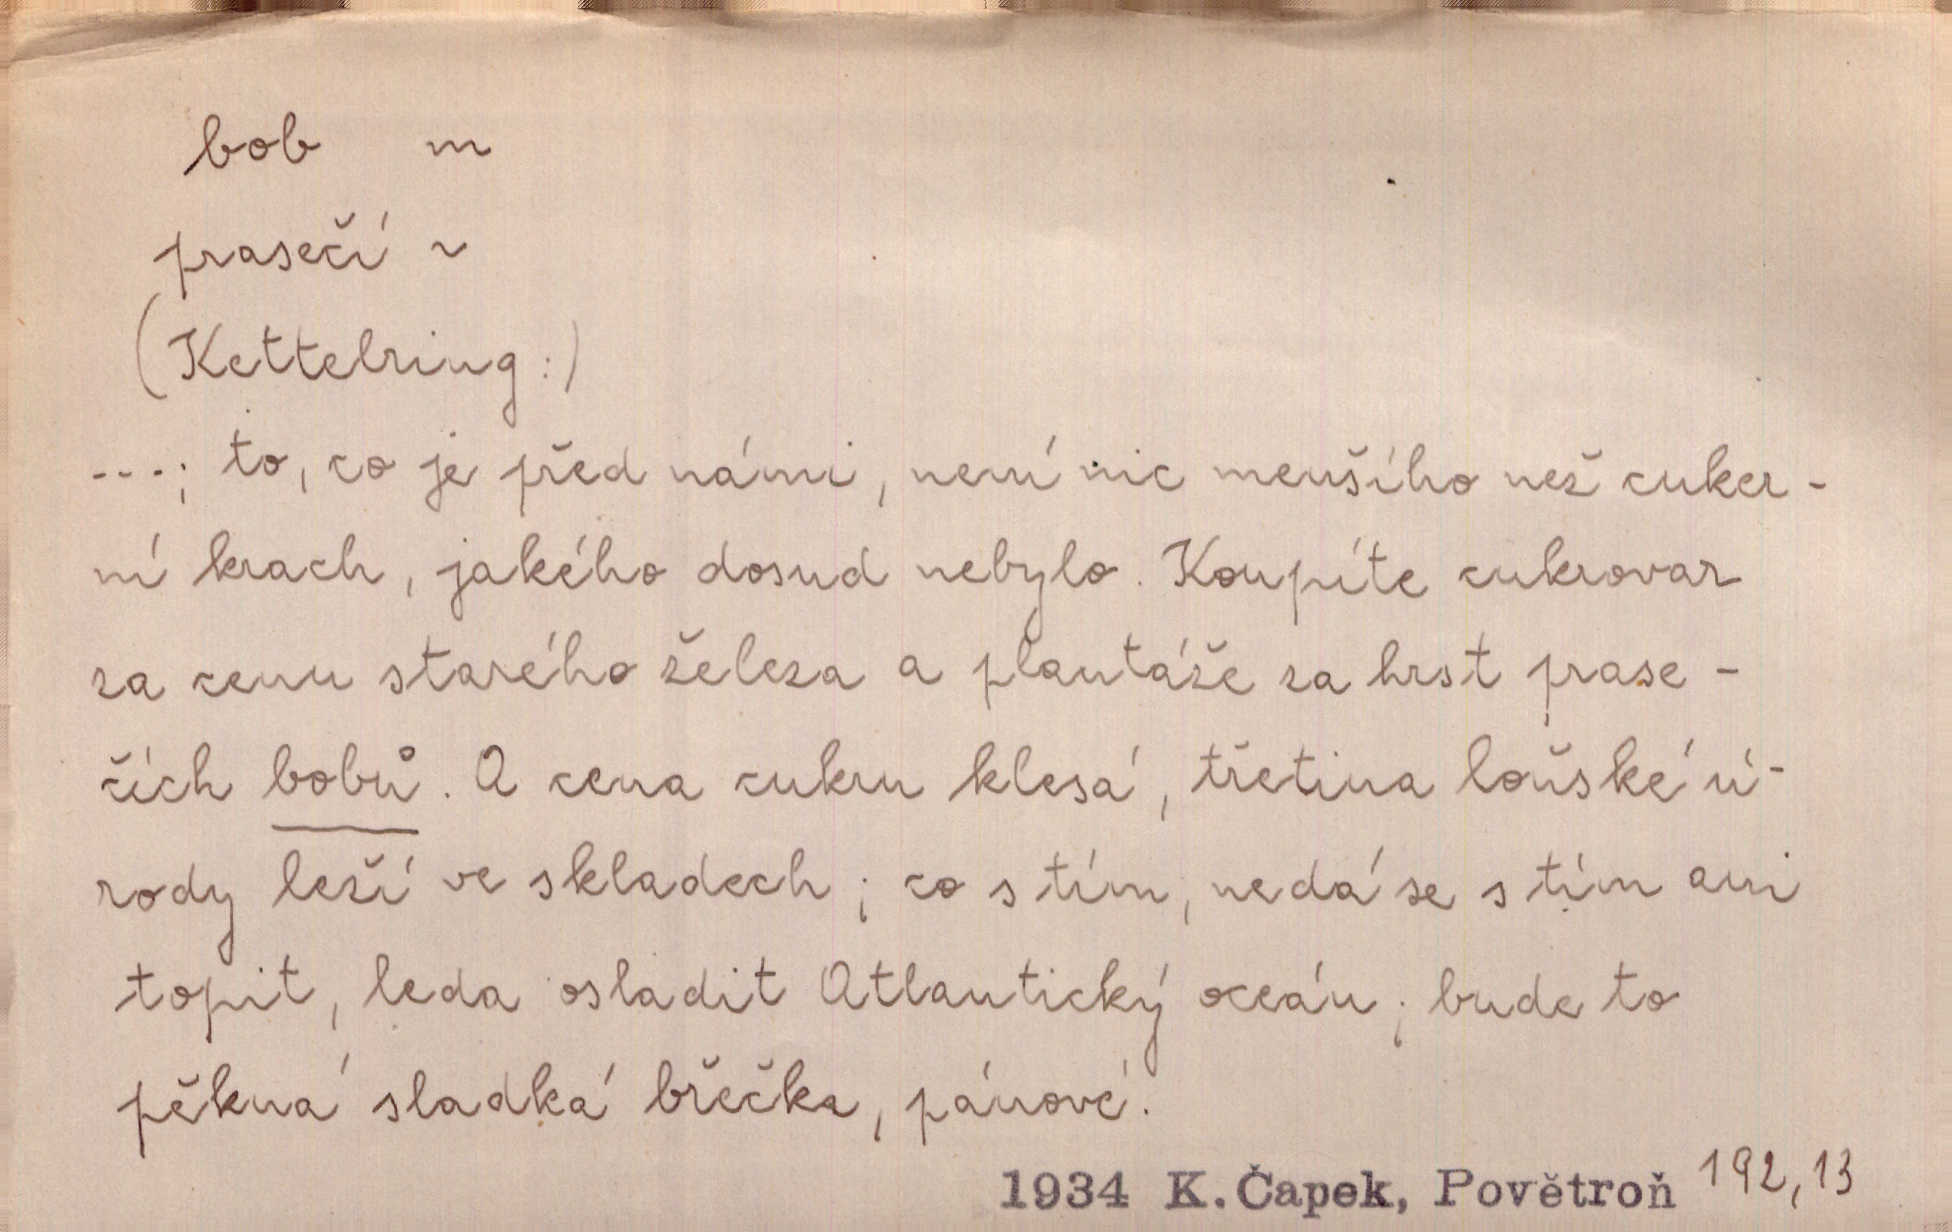 bob m
prasečí ~
(Kettelring:)
---; to, co je před námi, není nic menšího než cuker-
ní krach, jakého dosud nebylo. Koupíte cukrovar
za cenu starého železa a plantáže za hrst prase-
čích bobů. A cena cukru klesá, třetina loňské ú-
rody leží ve skladech; co s tím, nedá se s tím ani
topit, leda osladit Atlantický oceán; bude to
pěkná sladká břečka, pánové.
1934 K. Čapek, Povětroň 192,13